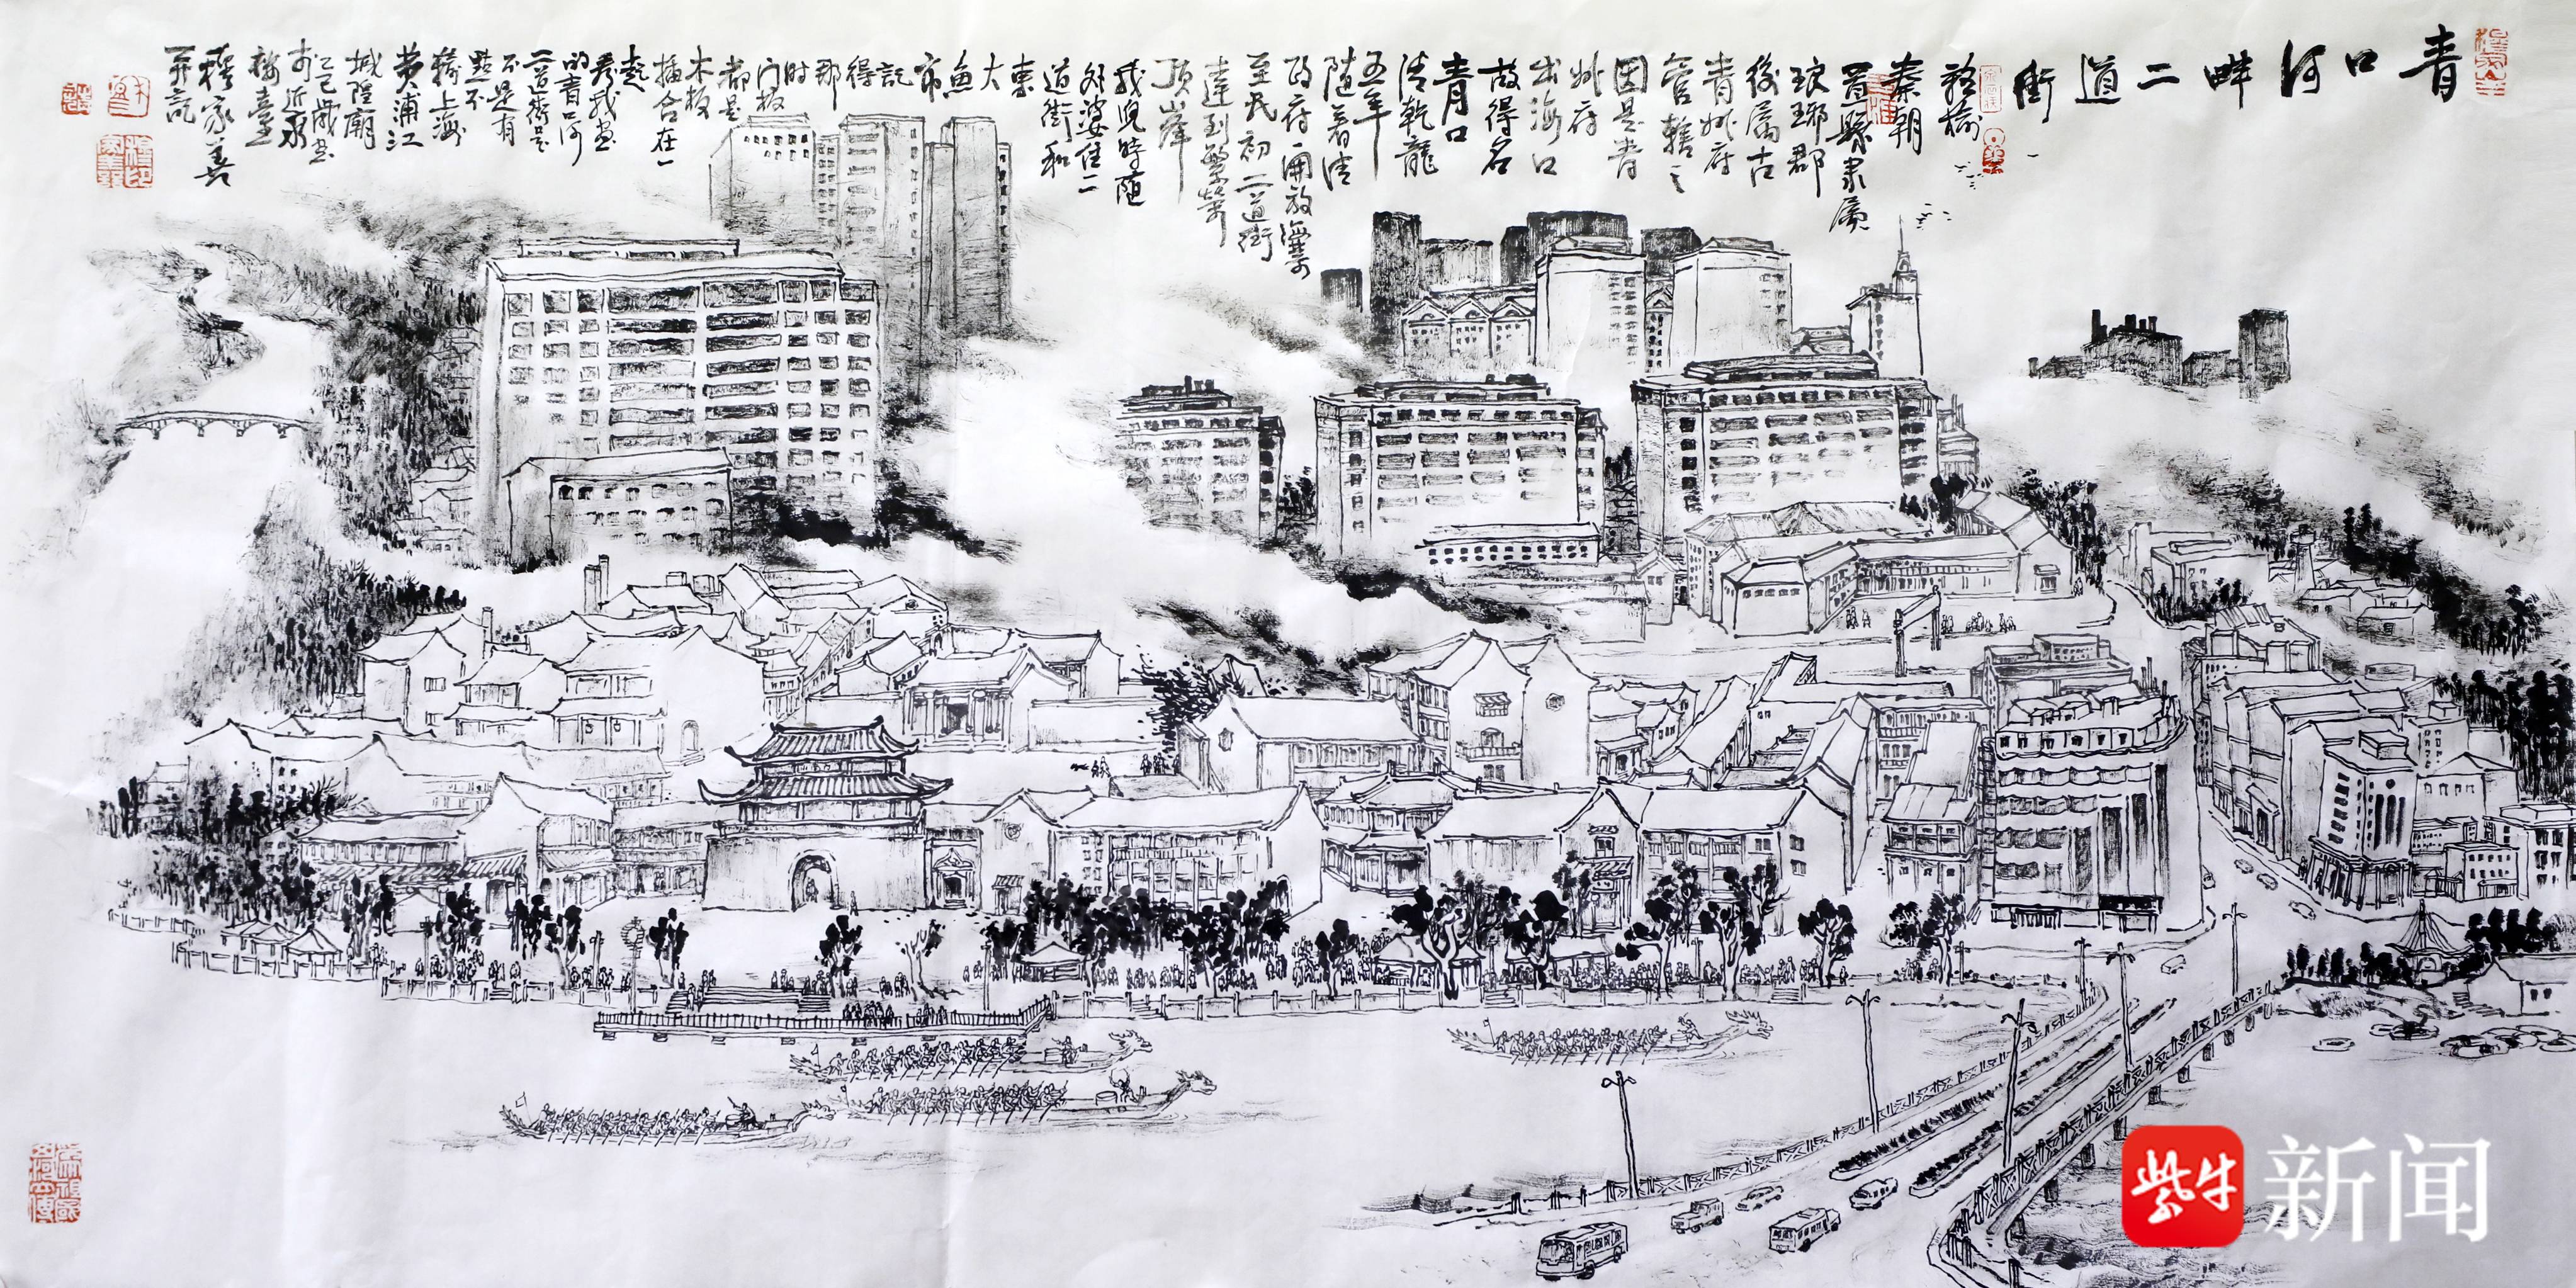 青口河畔二道街
赣榆
秦朝
置縣隶属
琅琊郡
後属古
青州府
管辖之
因是青
州府
出海口
故得名
青口
清乾龍
五年
随着清
政府開放海禁
至民初二道街
達到繁華
顶峰
我児時随
外婆住二
道街和
東
大
魚
市
記
得
那
时
门板
都是
木板
插合在一
起
看我画
的青口河
二道街是
不是有
點不
输上海
黄浦江
城隍廟
乙巳歲
于近水
楼臺
穆家善
并記
紫牛新闻